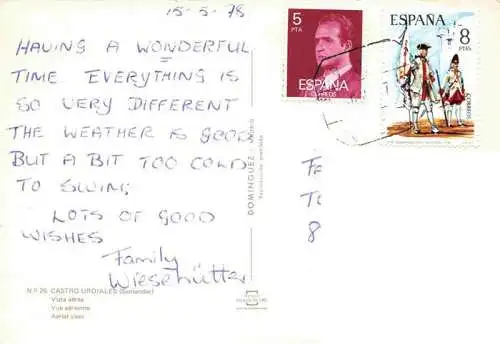 15-5-78
HAVING A WONDERFUL
TIME. EVERYTHING IS
SO VERY DIFFERENT
THE WEATHER IS GOOD
BUT A BIT TOO COLD
TO SWIM;
LOTS OF GOOD
WISHES
Family
Wiesehütter
N.º 26 CASTRO URDIALES (Santander)
Vista aérea
Vue aérienne
Aerial view
DOMINGUEZ - 
Reproducción prohibida
5
PTA
ESPAÑA
CORREOS
ESPAÑA
8
PTAS
CORREOS